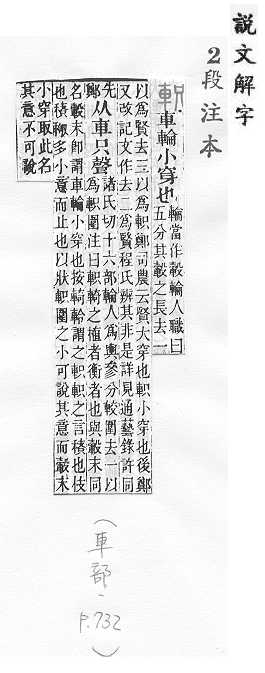 說文解字
2段注本
軹 車輪小穿也 輪當作轂輪人職曰
五分其轂之長去一
以爲賢去三以爲軹鄭司農云賢大穿也軹小穿也後鄭
又改記文作去二爲賢程氏辨其非是詳見通藝錄許同
先
鄭
从車只聲
諸氏切十六部輪人爲輿參分較圍去一以
爲軹圍注曰軹輢之植者衡者也與轂末同
名轂末即謂車輪小穿也按輢輪謂之軹軹之言積也枝
也積多小意而止也以狀軹圍之小可說其意而轂末
小穿取此名
其意不可說
(車部、P.732)